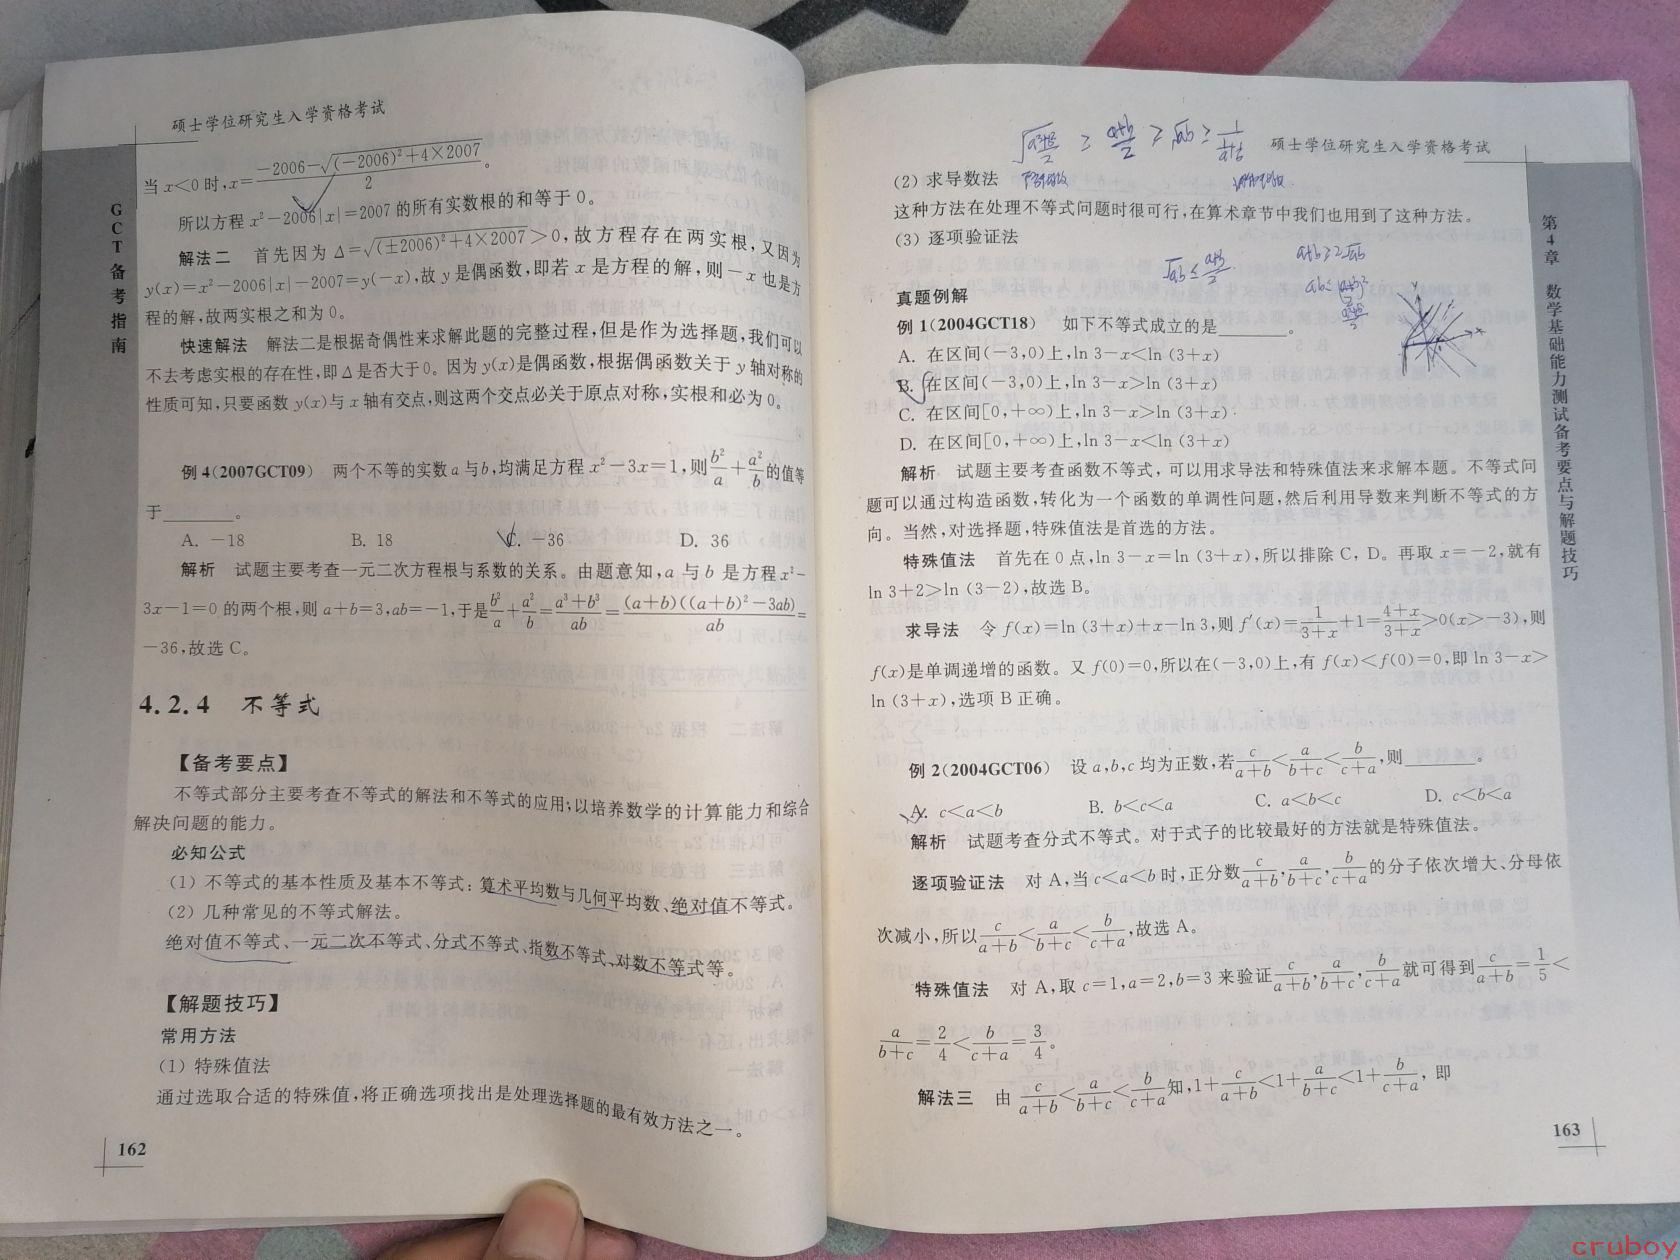 硕士学位研究生入学资格考试
GCT备考指南
当 x<0 时,x=(-2006-√((-2006)²+4×2007))/2。
所以方程 x²-2006|x|=2007 的所有实数根的和等于 0。
解法二 首先因为 Δ=√((±2006)²+4×2007)>0,故方程存在两实根,又因为
y(x)=x²-2006|x|-2007=y(-x),故 y 是偶函数,即若 x 是方程的解,则-x 也是方
程的解,故两实根之和为 0。
快速解法 解法二是根据奇偶性来求解此题的完整过程,但是作为选择题,我们可以
不去考虑实根的存在性,即 Δ 是否大于 0。因为 y(x)是偶函数,根据偶函数关于 y 轴对称的
性质可知,只要函数 y(x)与 x 轴有交点,则这两个交点必关于原点对称,实根和必为 0。
例 4(2007GCT09) 两个不等的实数 a 与 b,均满足方程 x²-3x=1,则 b²/a+a²/b 的值等
于________。
A. -18 B. 18 C. -36 D. 36
解析 试题主要考查一元二次方程根与系数的关系。由题意知,a 与 b 是方程 x²-
3x-1=0 的两个根,则 a+b=3,ab=-1,于是 b²/a+a²/b=(a³+b³)/ab=(a+b)((a+b)²-3ab)/ab=
-36,故选 C。
4.2.4 不等式
【备考要点】
不等式部分主要考查不等式的解法和不等式的应用;以培养数学的计算能力和综合
解决问题的能力。
必知公式
(1) 不等式的基本性质及基本不等式:算术平均数与几何平均数、绝对值不等式。
(2) 几种常见的不等式解法。
绝对值不等式、一元二次不等式、分式不等式、指数不等式、对数不等式等。
【解题技巧】
常用方法
(1) 特殊值法
通过选取合适的特殊值,将正确选项找出是处理选择题的最有效方法之一。
162
硕士学位研究生入学资格考试
第4章 数学基础能力测试备考要点与解题技巧
(2) 求导数法
这种方法在处理不等式问题时很可行,在算术章节中我们也用到了这种方法。
(3) 逐项验证法
√ab ≤ (a+b)/2
a+b≥2√ab
真题例解
例 1(2004GCT18) 如下不等式成立的是________。
A. 在区间(-3,0)上,ln 3-x<ln (3+x)
B. 在区间(-3,0)上,ln 3-x>ln (3+x)
C. 在区间[0,+∞)上,ln 3-x>ln (3+x)
D. 在区间[0,+∞)上,ln 3-x<ln (3+x)
解析 试题主要考查函数不等式,可以用求导法和特殊值法来求解本题。不等式问
题可以通过构造函数,转化为一个函数的单调性问题,然后利用导数来判断不等式的方
向。当然,对选择题,特殊值法是首选的方法。
特殊值法 首先在 0 点,ln 3-x=ln (3+x),所以排除 C, D。再取 x=-2,就有
ln 3+2>ln (3-2),故选 B。
求导法 令 f(x)=ln (3+x)+x-ln 3,则 f′(x)=1/(3+x)+1=(4+x)/(3+x)>0(x>-3),则
f(x)是单调递增的函数。又 f(0)=0,所以在(-3,0)上,有 f(x)<f(0)=0,即 ln 3-x>
ln (3+x),选项 B 正确。
例 2(2004GCT06) 设 a,b,c 均为正数,若 c/(a+b)<a/(b+c)<b/(c+a),则________。
A. c<a<b B. b<c<a C. a<b<c D. c<b<a
解析 试题考查分式不等式。对于式子的比较最好的方法就是特殊值法。
逐项验证法 对 A,当 c<a<b 时,正分数 c/(a+b),a/(b+c),b/(c+a) 的分子依次增大、分母依
次减小,所以 c/(a+b)<a/(b+c)<b/(c+a),故选 A。
特殊值法 对 A,取 c=1,a=2,b=3 来验证 c/(a+b),a/(b+c),b/(c+a) 就可得到 c/(a+b)=1/5<
a/(b+c)=2/4<b/(c+a)=3/4。
解法三 由 c/(a+b)<a/(b+c)<b/(c+a) 知,1+c/(a+b)<1+a/(b+c)<1+b/(c+a), 即
163
cruboy